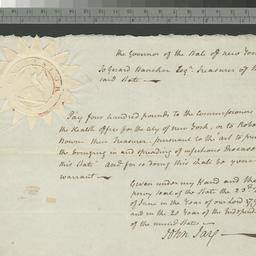 the Governor of the State of new York
To Gerard Bancker Esqr. Treasurer of the
said State
Pay four hundred pounds to the Commissioners
the Health office for the city of new York, or to Robert
Bowne their Treasurer, pursuant to the act to prevent
the bringing in and spreading of infectious Diseases in
this State and for so doing this shall be your
warrant
Given under my Hand and the
privy seal of the State the 23d
of June in the Year of our Lord 179
and in the 20 Year of the Independ
of the united States
John Jay